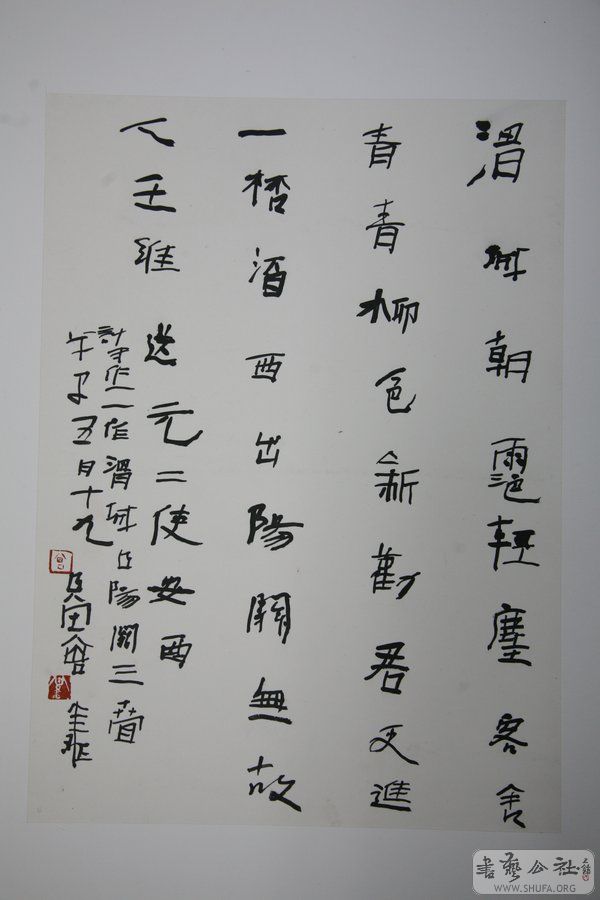 渭城朝雨浥輕塵客舍
青青柳色新勸君更進
一桮酒西出陽關無故
人王維 送元二使安西
一作渭城 陽關三疊
五月十九
書藝公社
WWW.SHUFA.ORG